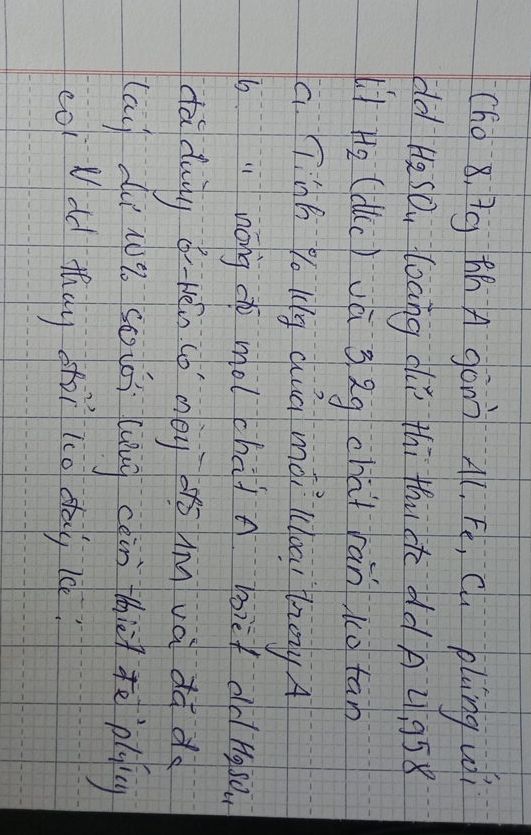 Cho 8,7g hh A gồm Al, Fe, Cu phứng với
dd H2SO4 loãng dư thì thu đc dd A 4,958
lít H2 (đkc) và 3,2g chất rắn ko tan
a. Tính % klg của mỗi kloại trong A
b. " nồng độ mol chất A. biết dd H2SO4
đã dùng ở trên có nồng độ 1M và đã đc
lấy dư 10% so với lượng cần thiết để phứng
coi V dd thay đổi ko đáng kể.